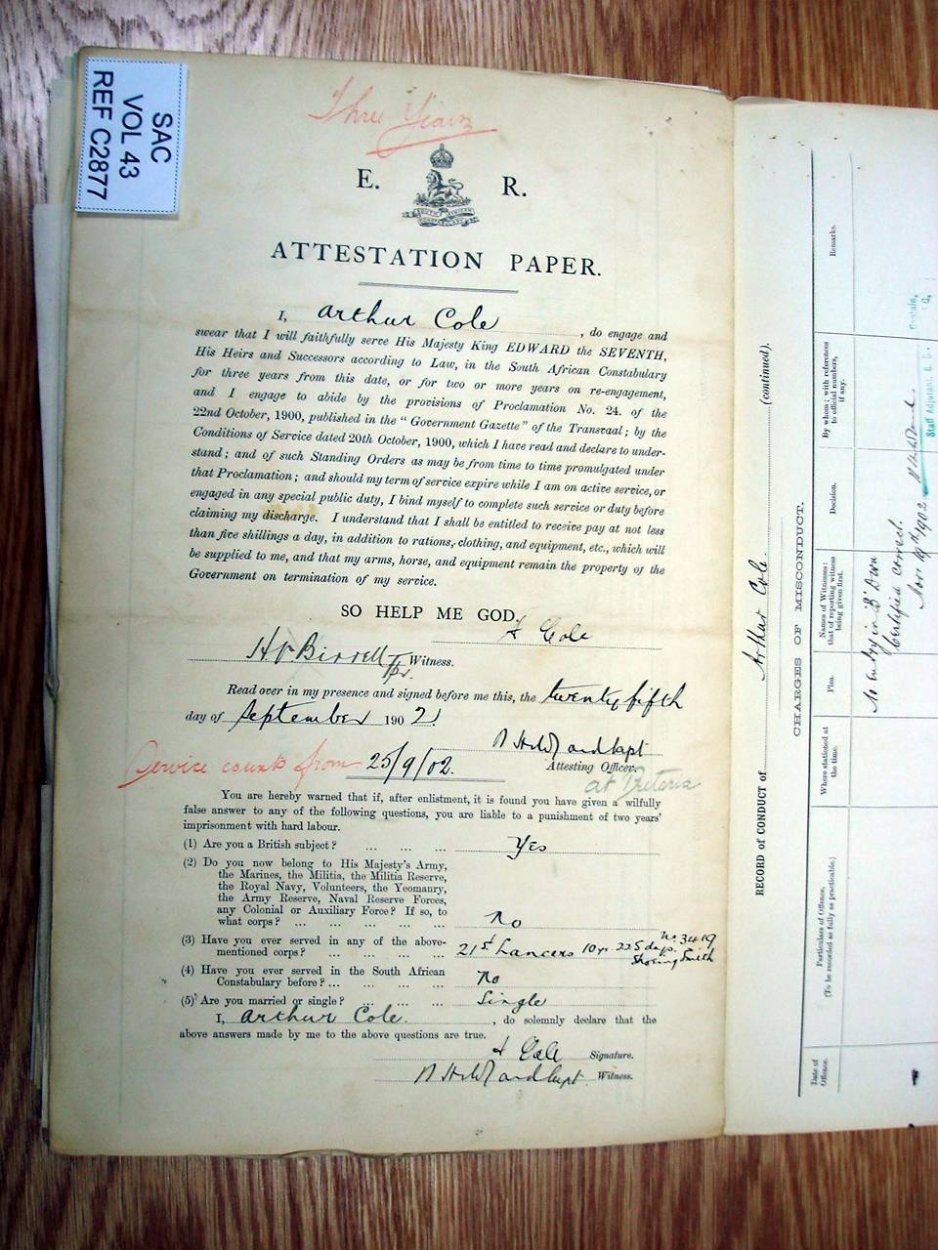 SAC
VOL 43
REF C2877
Three Years
E. R.
ATTESTATION PAPER.
I, Arthur Cole, do engage and
swear that I will faithfully serve His Majesty King EDWARD the SEVENTH,
His Heirs and Successors according to Law, in the South African Constabulary
for three years from this date, or for two or more years on re-engagement,
and I engage to abide by the provisions of Proclamation No. 24. of the
22nd October, 1900, published in the "Government Gazette" of the Transvaal; by the
Conditions of Service dated 20th October, 1900, which I have read and declare to under-
stand; and of such Standing Orders as may be from time to time promulgated under
that Proclamation; and should my term of service expire while I am on active service, or
engaged in any special public duty, I bind myself to complete such service or duty before
claiming my discharge. I understand that I shall be entitled to receive pay at not less
than five shillings a day, in addition to rations, clothing, and equipment, etc., which will
be supplied to me, and that my arms, horse, and equipment remain the property of the
Government on termination of my service.
SO HELP ME GOD.
A Cole
Birrell Tpr. Witness.
Read over in my presence and signed before me this, the twentyfifth
day of September 1902
Capt
Attesting Officer.
at Pretoria
Service counts from 25/9/02.
You are hereby warned that if, after enlistment, it is found you have given a wilfully
false answer to any of the following questions, you are liable to a punishment of two years'
imprisonment with hard labour.
(1) Are you a British subject? ... ... ... Yes
(2) Do you now belong to His Majesty's Army,
the Marines, the Militia, the Militia Reserve,
the Royal Navy, Volunteers, the Yeomanry,
the Army Reserve, Naval Reserve Forces,
any Colonial or Auxiliary Force? If so, to
what corps? ... ... ... ... No
(3) Have you ever served in any of the above-
mentioned corps? ... ... ... ... 21st Lancers 10yr 225 days. No. 3419
Shoeing Smith
(4) Have you ever served in the South African
Constabulary before? ... ... ... ... No
(5) Are you married or single? ... ... ... Single
I, Arthur Cole, do solemnly declare that the
above answers made by me to the above questions are true.
A Cole Signature.
Capt Witness.
RECORD of CONDUCT of Arthur Cole (continued).
CHARGES OF MISCONDUCT.
Date of
Offence.
Particulars of Offence.
(To be recorded as fully as practicable.)
Where stationed at
the time.
Plea.
Names of Witnesses;
that of reporting witness
being given first.
Decision.
By whom; with references
to official numbers,
if any.
Remarks.
No entry in 'B' Divn
Certified correct.
Nov 19th 1902
Captain,
Staff Adjutant